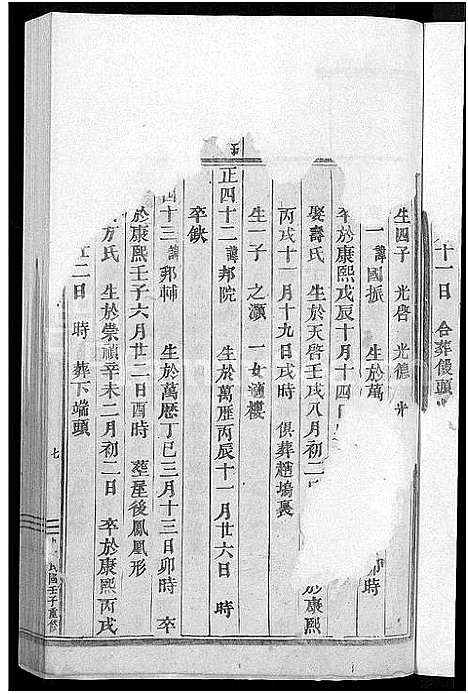 十一日 合葬饅頭
生四子 光啓 光德 光
一 諱國振 生於萬
卒於康熙戊辰十月十四日 卯時
娶壽氏 生於天啓壬戌八月初二 於康熙
丙戌十一月十九日戌時 俱葬趙塢裏
生一子 之灝 一女適樓
正四十二 諱邦院 生於萬歷丙辰十一月廿六日 時
卒缺
四十三 諱邦輔 生於萬歷丁巳三月十三日卯時 卒
於康熙壬子六月廿二日酉時 葬屋後鳳凰形
方氏 生於崇禎辛未二月初二日 卒於康熙丙戌
二日 時 葬下端頭
七
民國壬子重修